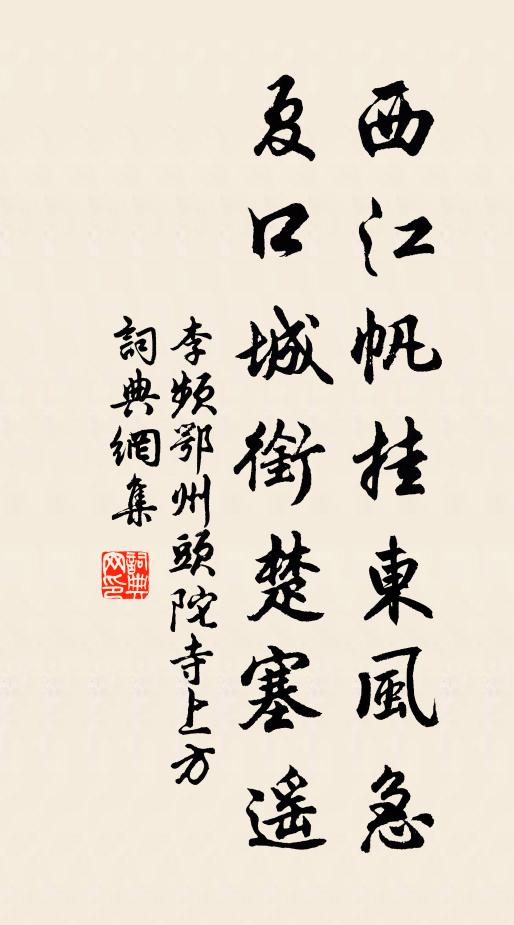 西江帆挂東風急
夏口城銜楚塞遥
李頻鄂州頭陀寺上方
詞典網集
詞典網印